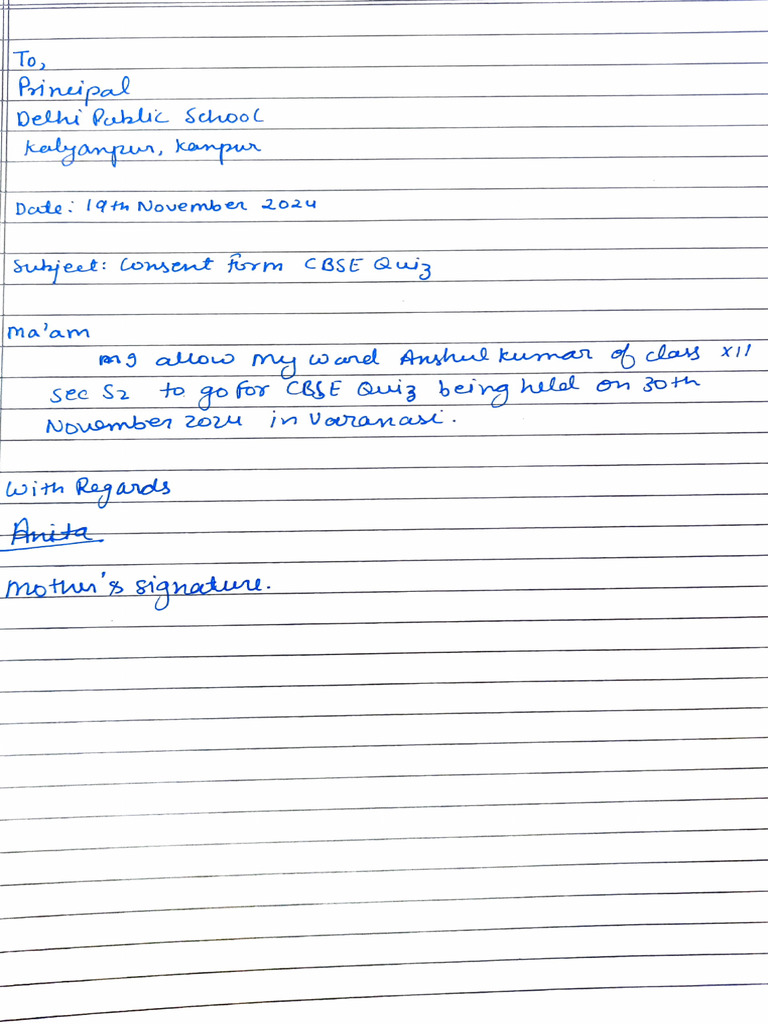 To,
Principal
Delhi Public School
Kalyanpur, Kanpur
Date: 19th November 2024
Subject: Consent Form CBSE Quiz
Ma'am
I allow my ward Anshul Kumar of class XII
Sec S2 to go for CBSE Quiz being held on 30th
November 2024 in Varanasi.
With Regards
Anita
Mother's signature.